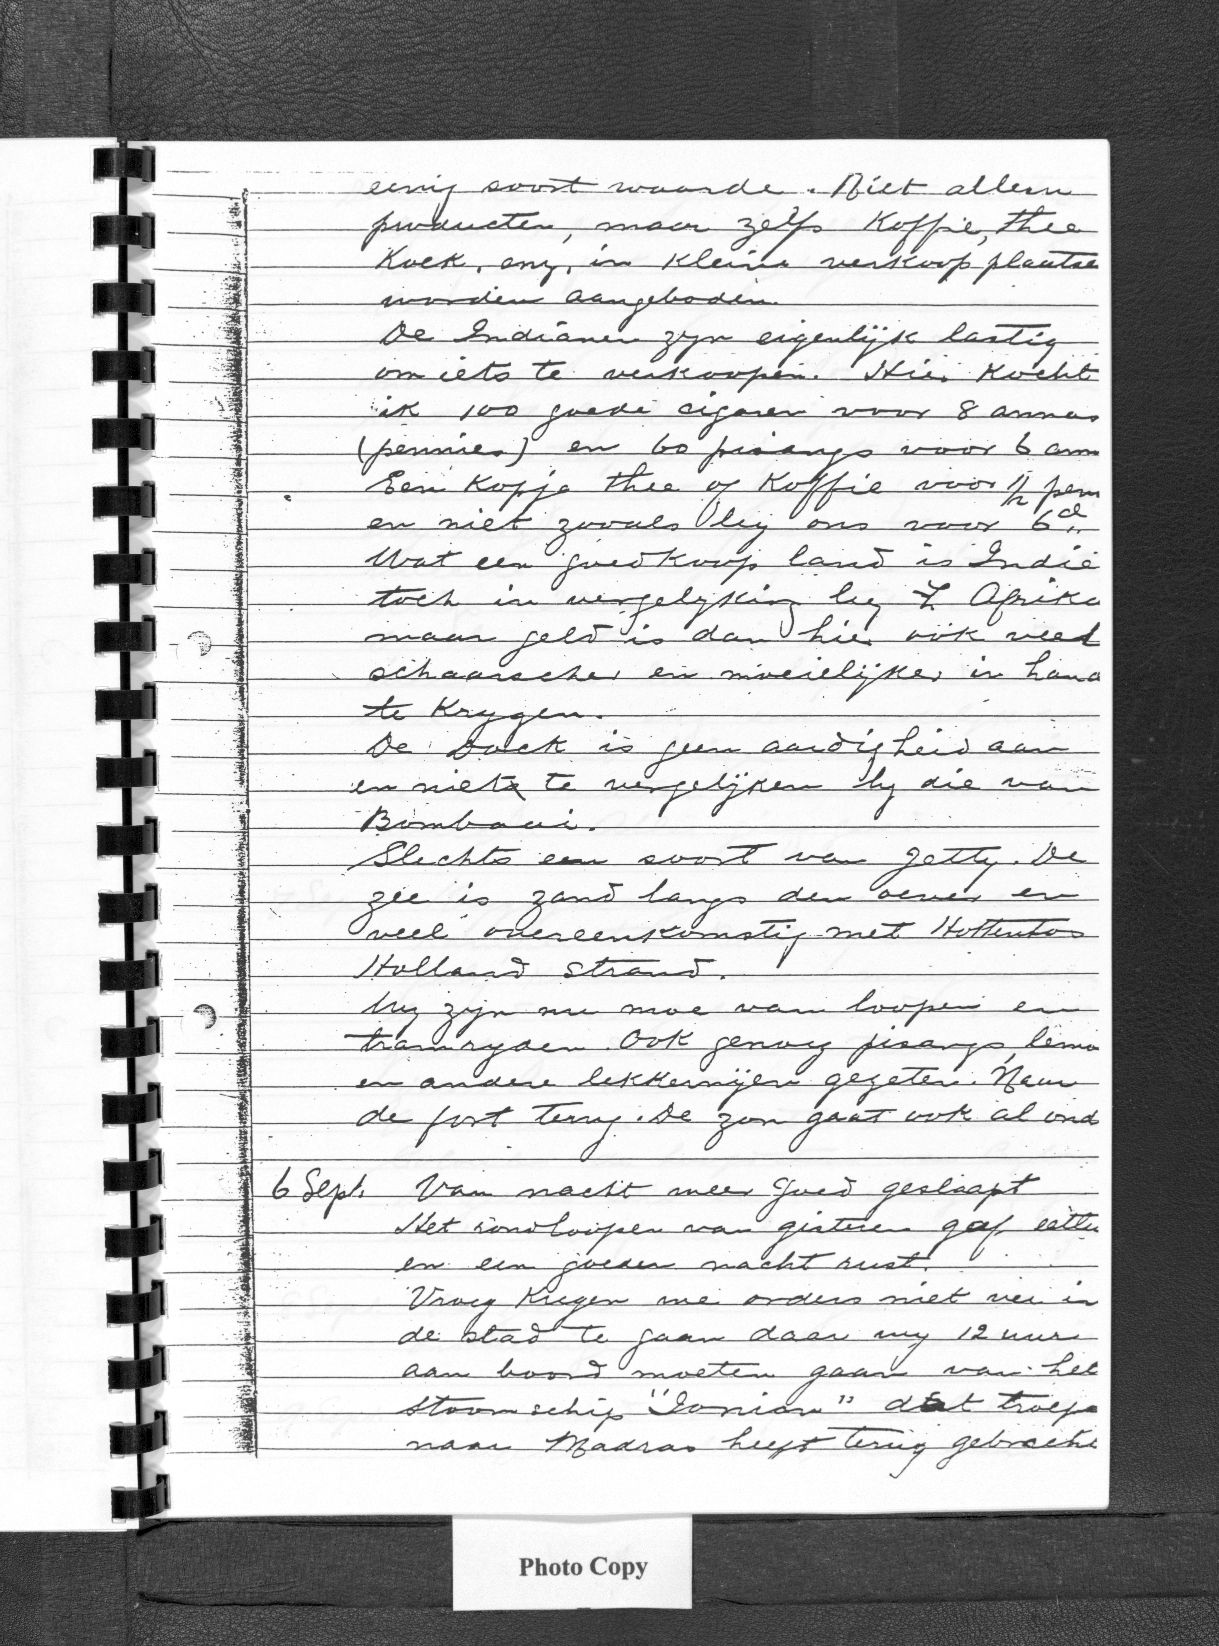 eenig soort waarde. Niet alleen
producten, maar zelfs Koffie, thee
Koek, enz, in kleine verkoop plaatse
worden aangeboden.
De Indiānen zyn eigenlijk lastig
om iets te verkoopen. Hier kocht
ik 100 goede cigaren voor 8 annas
(pennies) en 60 pisangs voor 6 ann
Een Kopje thee of Koffie voor 1/2 pen
en niet zooals by ons voor 6d.
Wat een goedkoop land is Indië
toch in vergelyking by Z Afrika
maar geld is dan hier ook veel
schaarscher en moeielijker in hand
te Krygen.
De Dock is geen aardigheid aan
en niet te vergelijken by die van
Bombaai.
Slechts een soort van Jetty. De
zee is zand langs den oever en
veel overeenkomstig met Hottentos
Holland strand.
Wy zijn nu moe van loopen en
tramryden. Ook genoeg pisangs, lemo
en andere lekkernijen gegeten. Naar
de fort terug. De zon gaat ook al ond
6 Sept. Van nacht weer goed geslaapt
Het rondloopen van gisteren gaf eetlu
en een goeden nacht rust.
Vroeg Kregen we orders niet ver in
de stad te gaan daar wy 12 uur
aan boord moeten gaan van het
stoomschip "Ionian" dat troepe
naar Madras heeft terug gebracht
Photo Copy